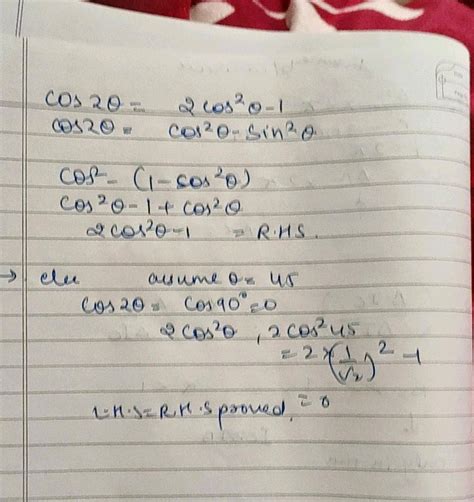 cos2θ = 2cos²θ-1
cos2θ = cos²θ - sin²θ
cos² - (1-cos²θ)
cos²θ-1+cos²θ
2cos²θ-1 = R.H.S.
→ assume θ = 45
cos2θ = cos90°=0
2cos²θ, 2cos²45
= 2×(1/√2)² -1
= 0
L.H.S=R.H.S proved.